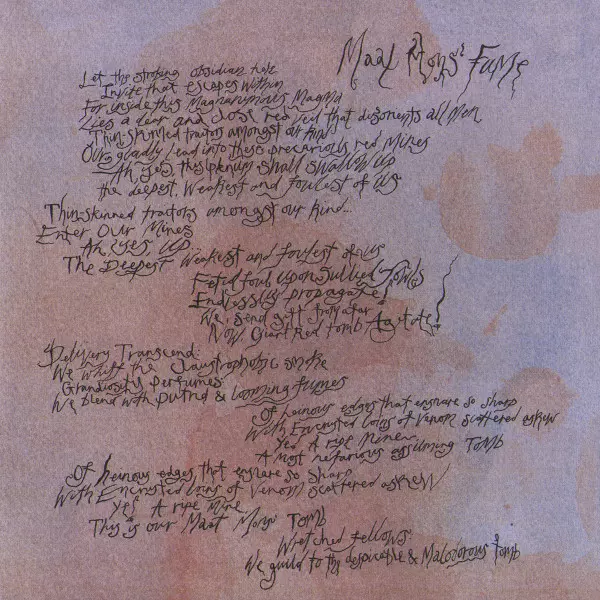 Maat Mons' Fume
Let the stroking obsidian hole
Invite that escapes within
For inside this Magnanimous Magma
Lies a lear and Lost red veil that disorients all Men
Thin-skinned traitors amongst our kind
Ours gladly lead into these precarious red Mines
Ah, yes, this plenum shall swallow up
the deepest, Weakest and foulest of us
Thin-skinned traitors amongst our kind...
Enter Our Mines
Ah, yes, up...
The Deepest Weakest and foulest of us
Fetid foul upon Sullied Fowls
Endlessly propagate!
We send gift from afar
Now, Giant Red tomb Agitate!
Delivery Transcend:
We whiff the Claustrophobic smoke
Grandiosity perfumes
We blend with putrid & looming fumes
Of heinous edges that ensnare so sharp
With Encrusted Coins of Venom scattered askew
Yes A ripe Mine..
A Most nefarious assuming Tomb
Of heinous edges that ensnare so sharp
With Encrusted Coins of Venom scattered askew
Yes A ripe Mine
This is our Maat Mons Tomb
Wretched fellows:
We guild to thy despicable & Malodorous tomb